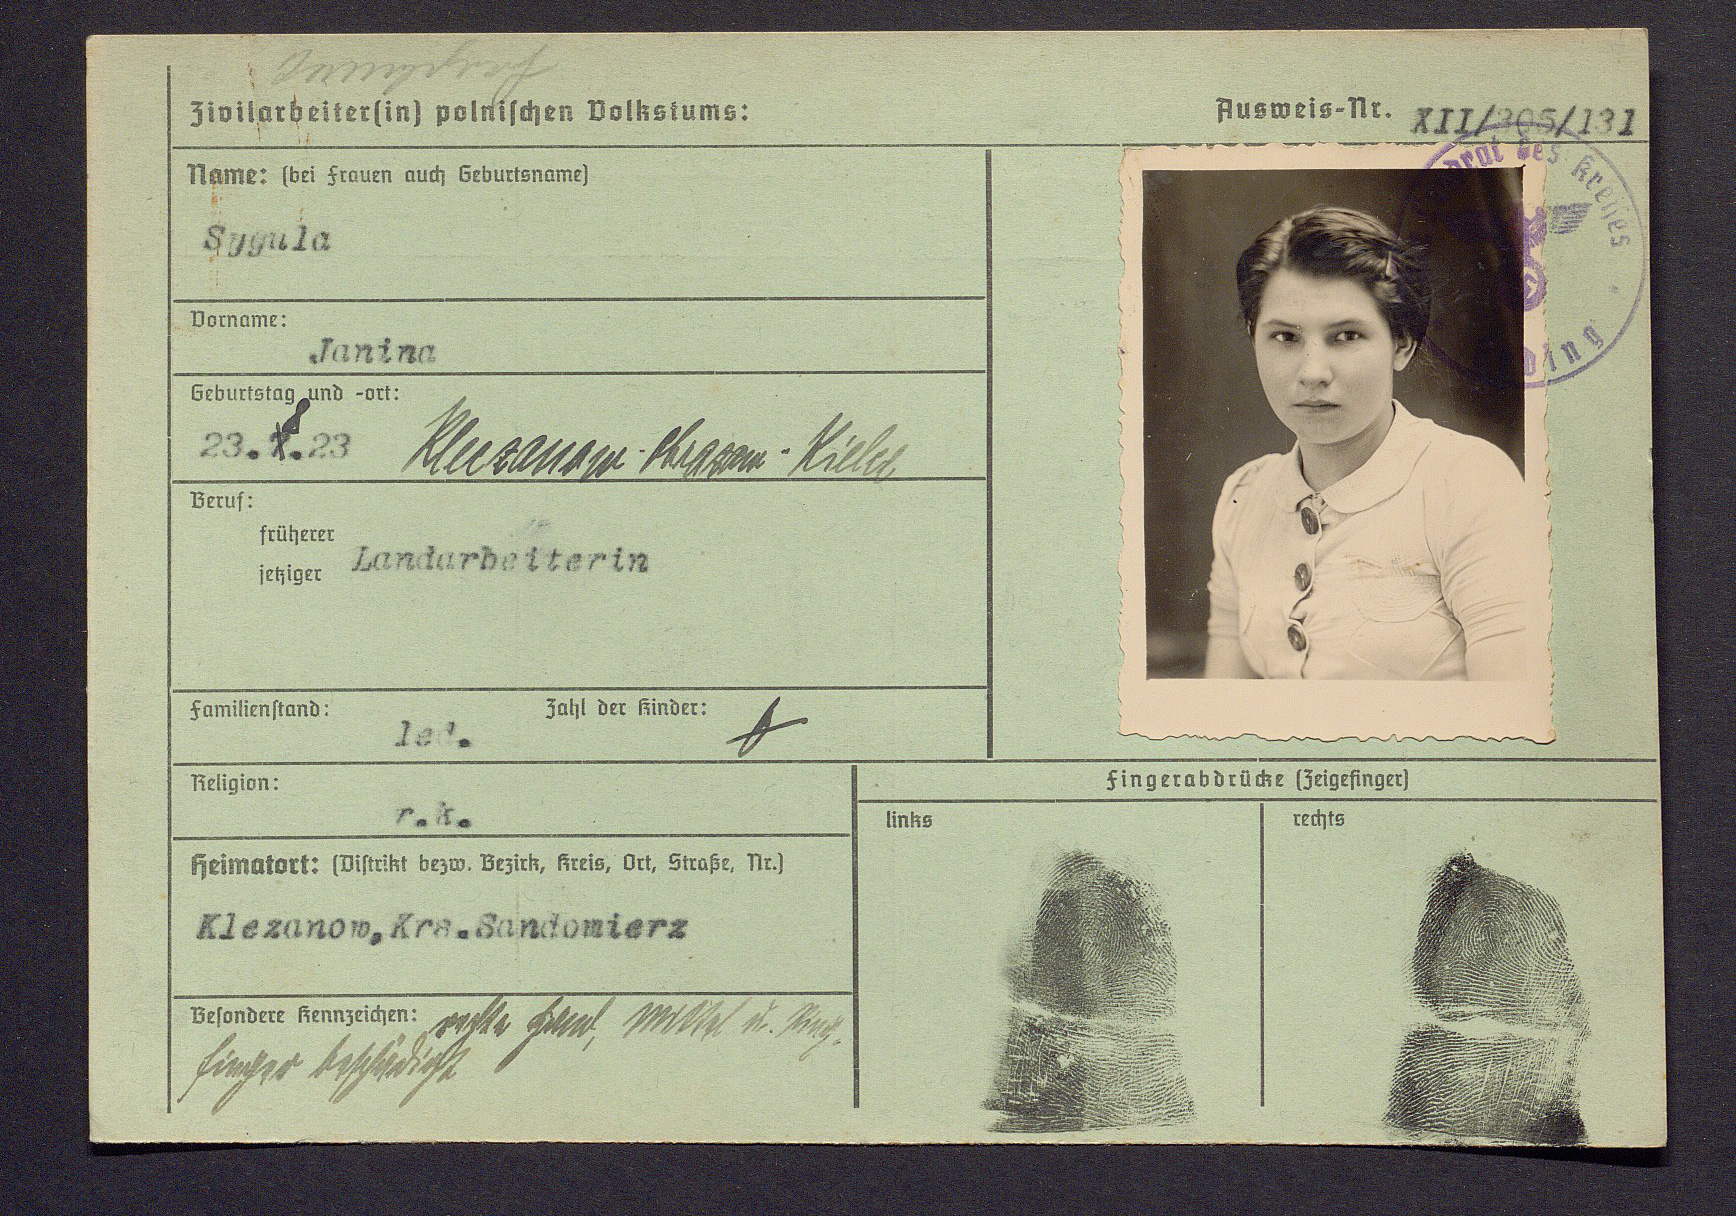 Zivilarbeiter(in) polnischen Volkstums:
Ausweis-Nr. XII/305/131
Name: (bei Frauen auch Geburtsname)
Sygula
Vorname:
Janina
Geburtstag und -ort:
23.8.23 Kleczanow - - Kielce
Beruf:
früherer
jetziger
Landarbeiterin
Familienstand:
led.
Zahl der Kinder:
Religion:
r.k.
Heimatort: (Distrikt bezw. Bezirk, Kreis, Ort, Straße, Nr.)
Klezanow,Krs.Sandomierz
Besondere Kennzeichen: rechte Hand, Mittel u. Ring-
finger beschädigt
Fingerabdrücke (Zeigefinger)
links
rechts
des Kreises
ding